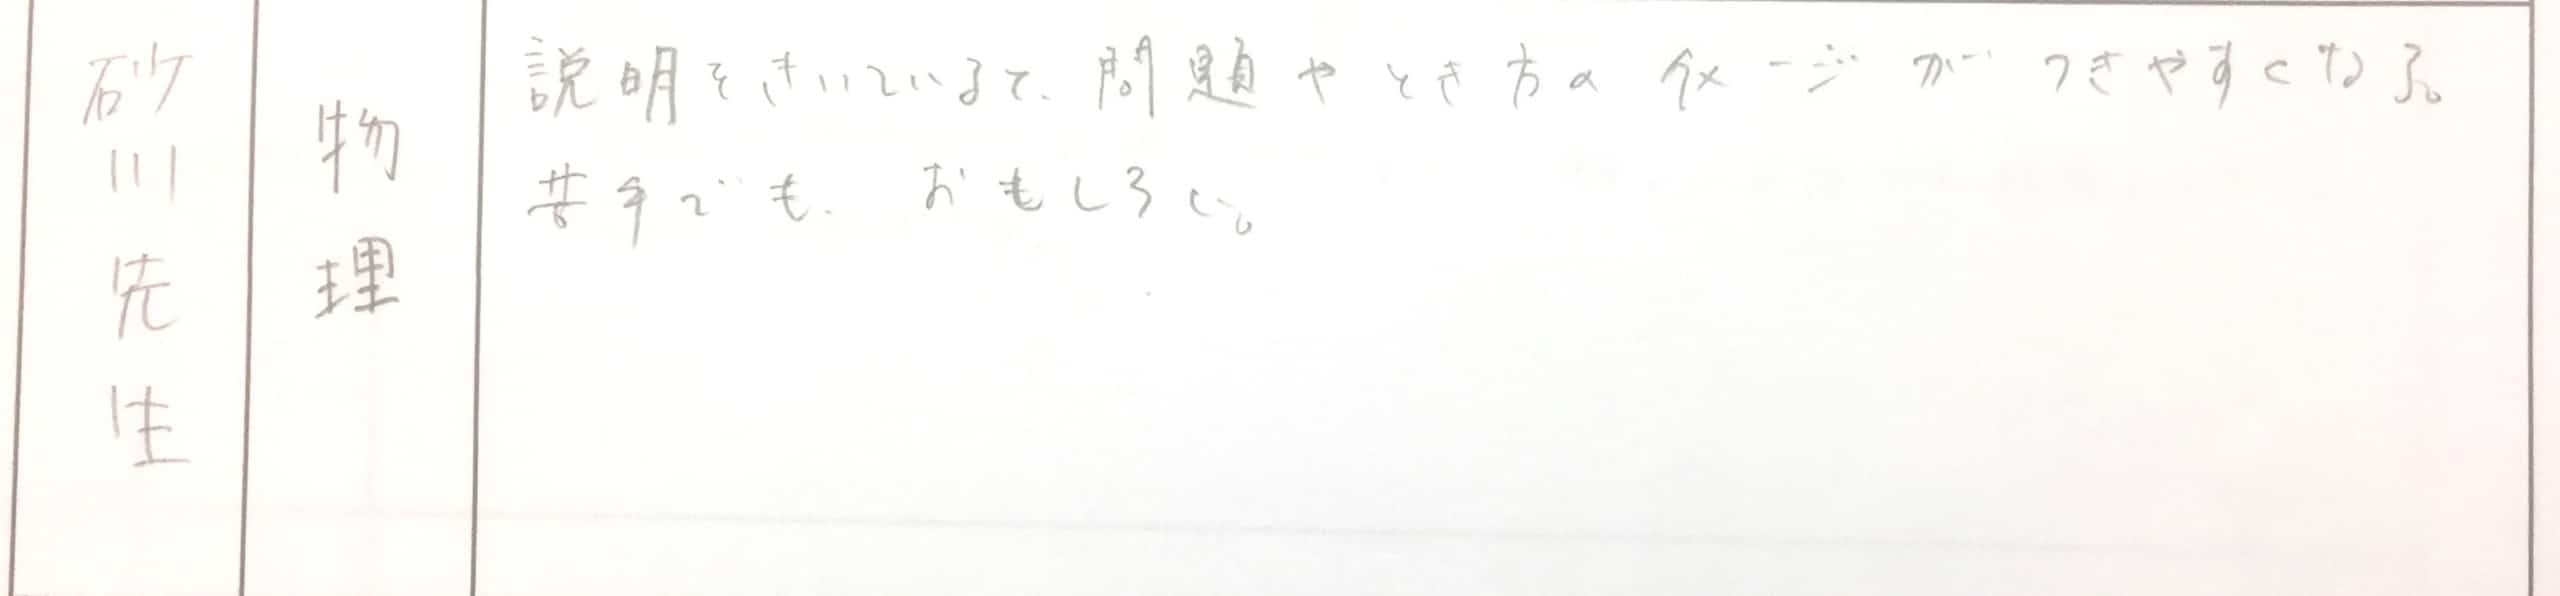 砂川先生
物理
説明をきいていると、問題やとき方のイメージがつきやすくなる。
苦手でも、おもしろい。